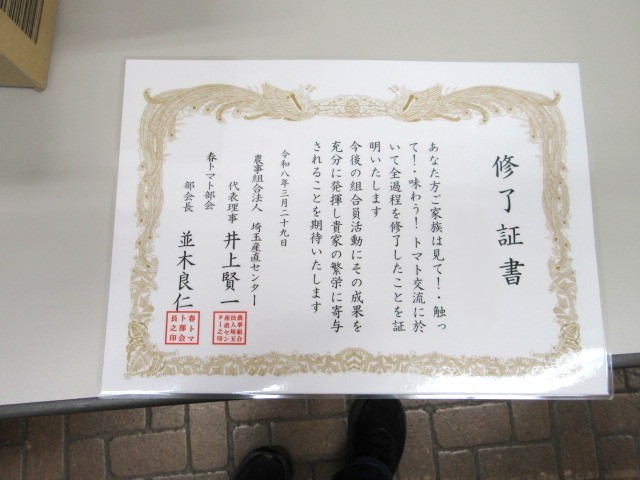 修了証書
あなた方ご家族は見て！・触っ
て！・味わう！トマト交流に於
いて全過程を修了したことを証
明いたします
今後の組合員活動にその成果を
充分に発揮し貴家の繁栄に寄与
されることを期待いたします
令和八年三月二十九日
農事組合法人 埼玉産直センター
代表理事 井上賢一
春トマト部会
部会長 並木良仁
農事組合
法人埼玉
産直セン
ター之印
春トマ
ト部会
長之印